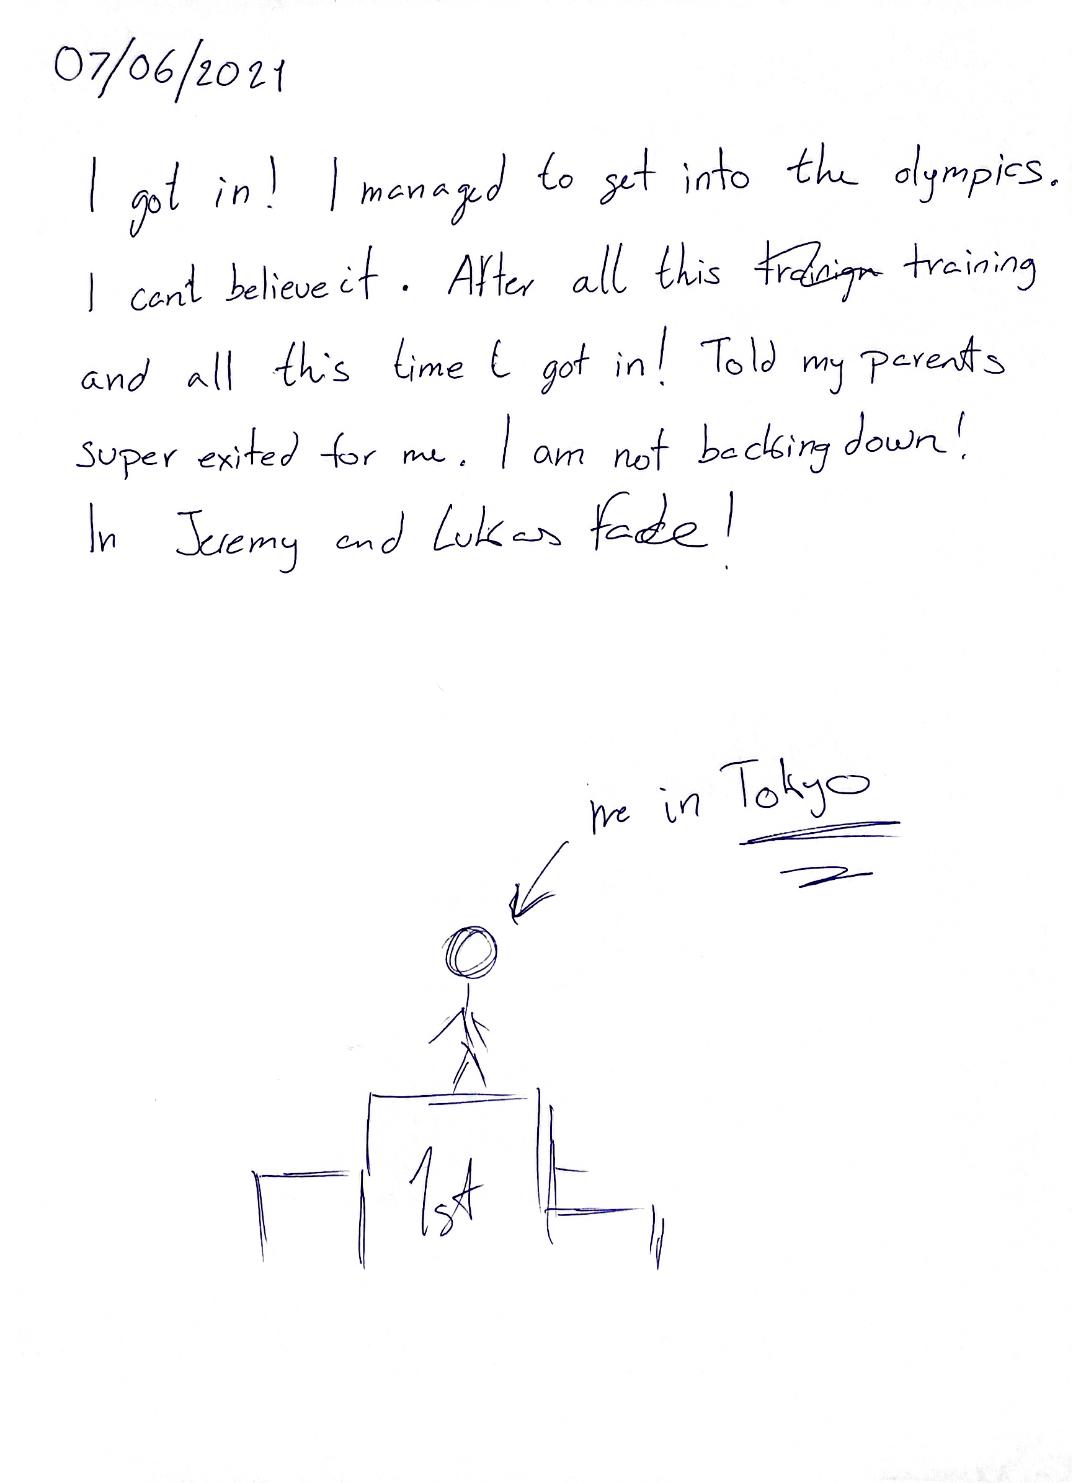 07/06/2021
I got in! I managed to get into the olympics.
I cant believe it. After all this traicign training
and all this time I got in! Told my parents
super exited for me. I am not backing down!
In Jeremy and Lukas fade!
me in Tokyo
1st